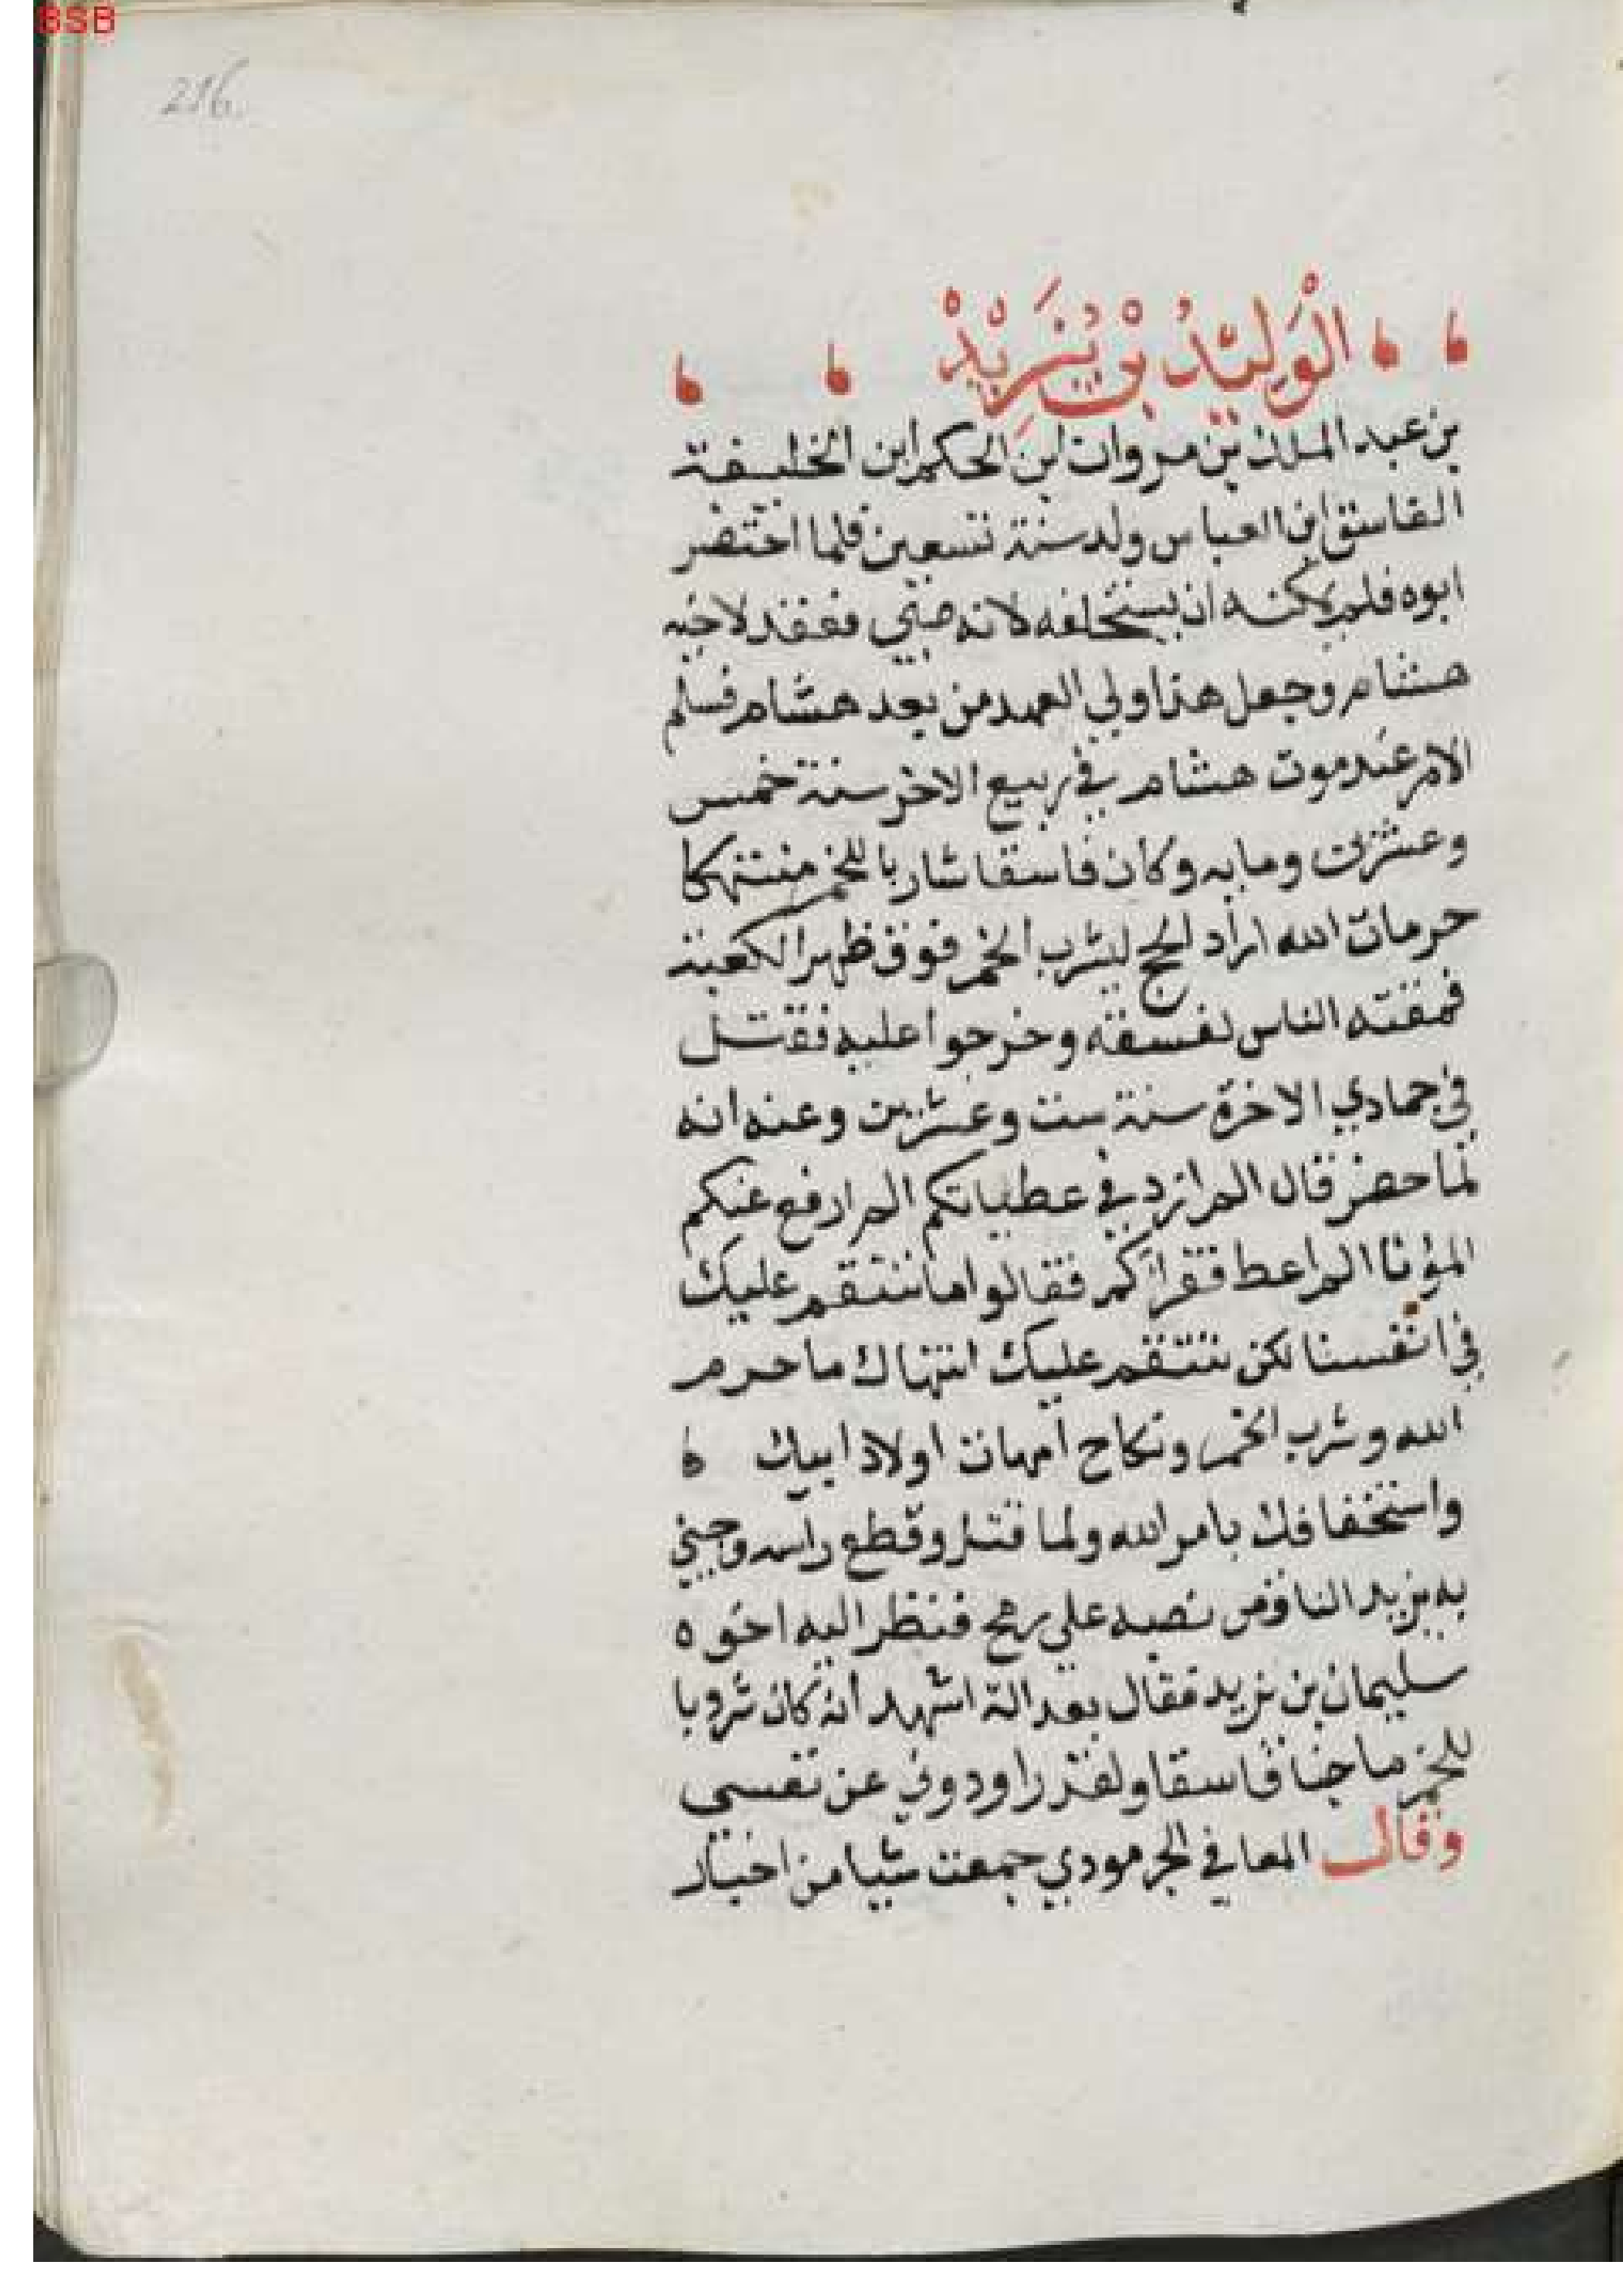 BSB
216.
الْوَلِيْدُ بْنُ يَزِيْدْ
بن عبد الملك بن مروان ابن الحكم ابن الخليفة
الفاسق ابن العباس ولد سنة تسعين فلما احتضر
ابوه فلم يمكنه ان يستخلفه لانه صبي فعقد لاخيه
هشام وجعل هذا ولي العهد من بعد هشام فسلم
الامر عند موت هشام في ربيع الاخر سنة خمس
وعشرين ومايه وكان فاسقا شاربا للخمر منتهكا
حرمات الله اراد الحج ليشرب الخمر فوق ظهر الكعبة
فمقته الناس لفسقه وخرجوا عليه فقتل
في جمادي الاخرة سنة ست وعشرين وعنه انه
لما حضر قال الم ازد في عطياتكم الم ارفع عنكم
المؤنا الم اعط فقراكم فقالوا ما ننتقم عليك
في انفسنا لكن ننتقم عليك انتهاك ما حرم
الله وشرب الخمر ونكاح امهات اولاد ابيك ه
واستخفافك بامر الله ولما قتل وقطع راسه وجيئ
به يزيد الناقص نصبه علي رمح فنظر اليه اخوه
سليمان بن يزيد فقال بعدا له اشهد انه كان شروبا
للخمر ماجنا فاسقا ولقد راودوني عن نفسي
وقال المعافي الجرمودي جمعت شيا من اخبار